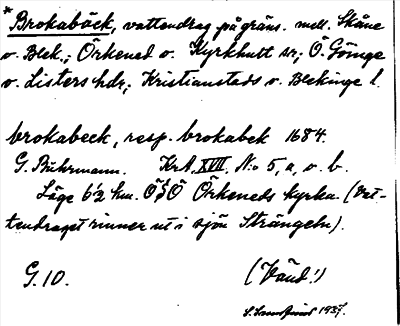 * Brokabäck, vattendrag på gräns. mell. Skåne
o. Blek.; Örkened o. Kyrkhult sr; Ö. Göinge
o. Listers hdr; Kristianstads o. Blekinge l.
brokabeck, resp. brokabek 1684.
G. Buhrmann. KrA. XVII, N:o 5, a, o. b.
Läge 6½ km. ÖSÖ Örkeneds kyrka. (Vat-
tendraget rinner ut i sjön Strängeln).
G. 10. (Vänd!)
1937.